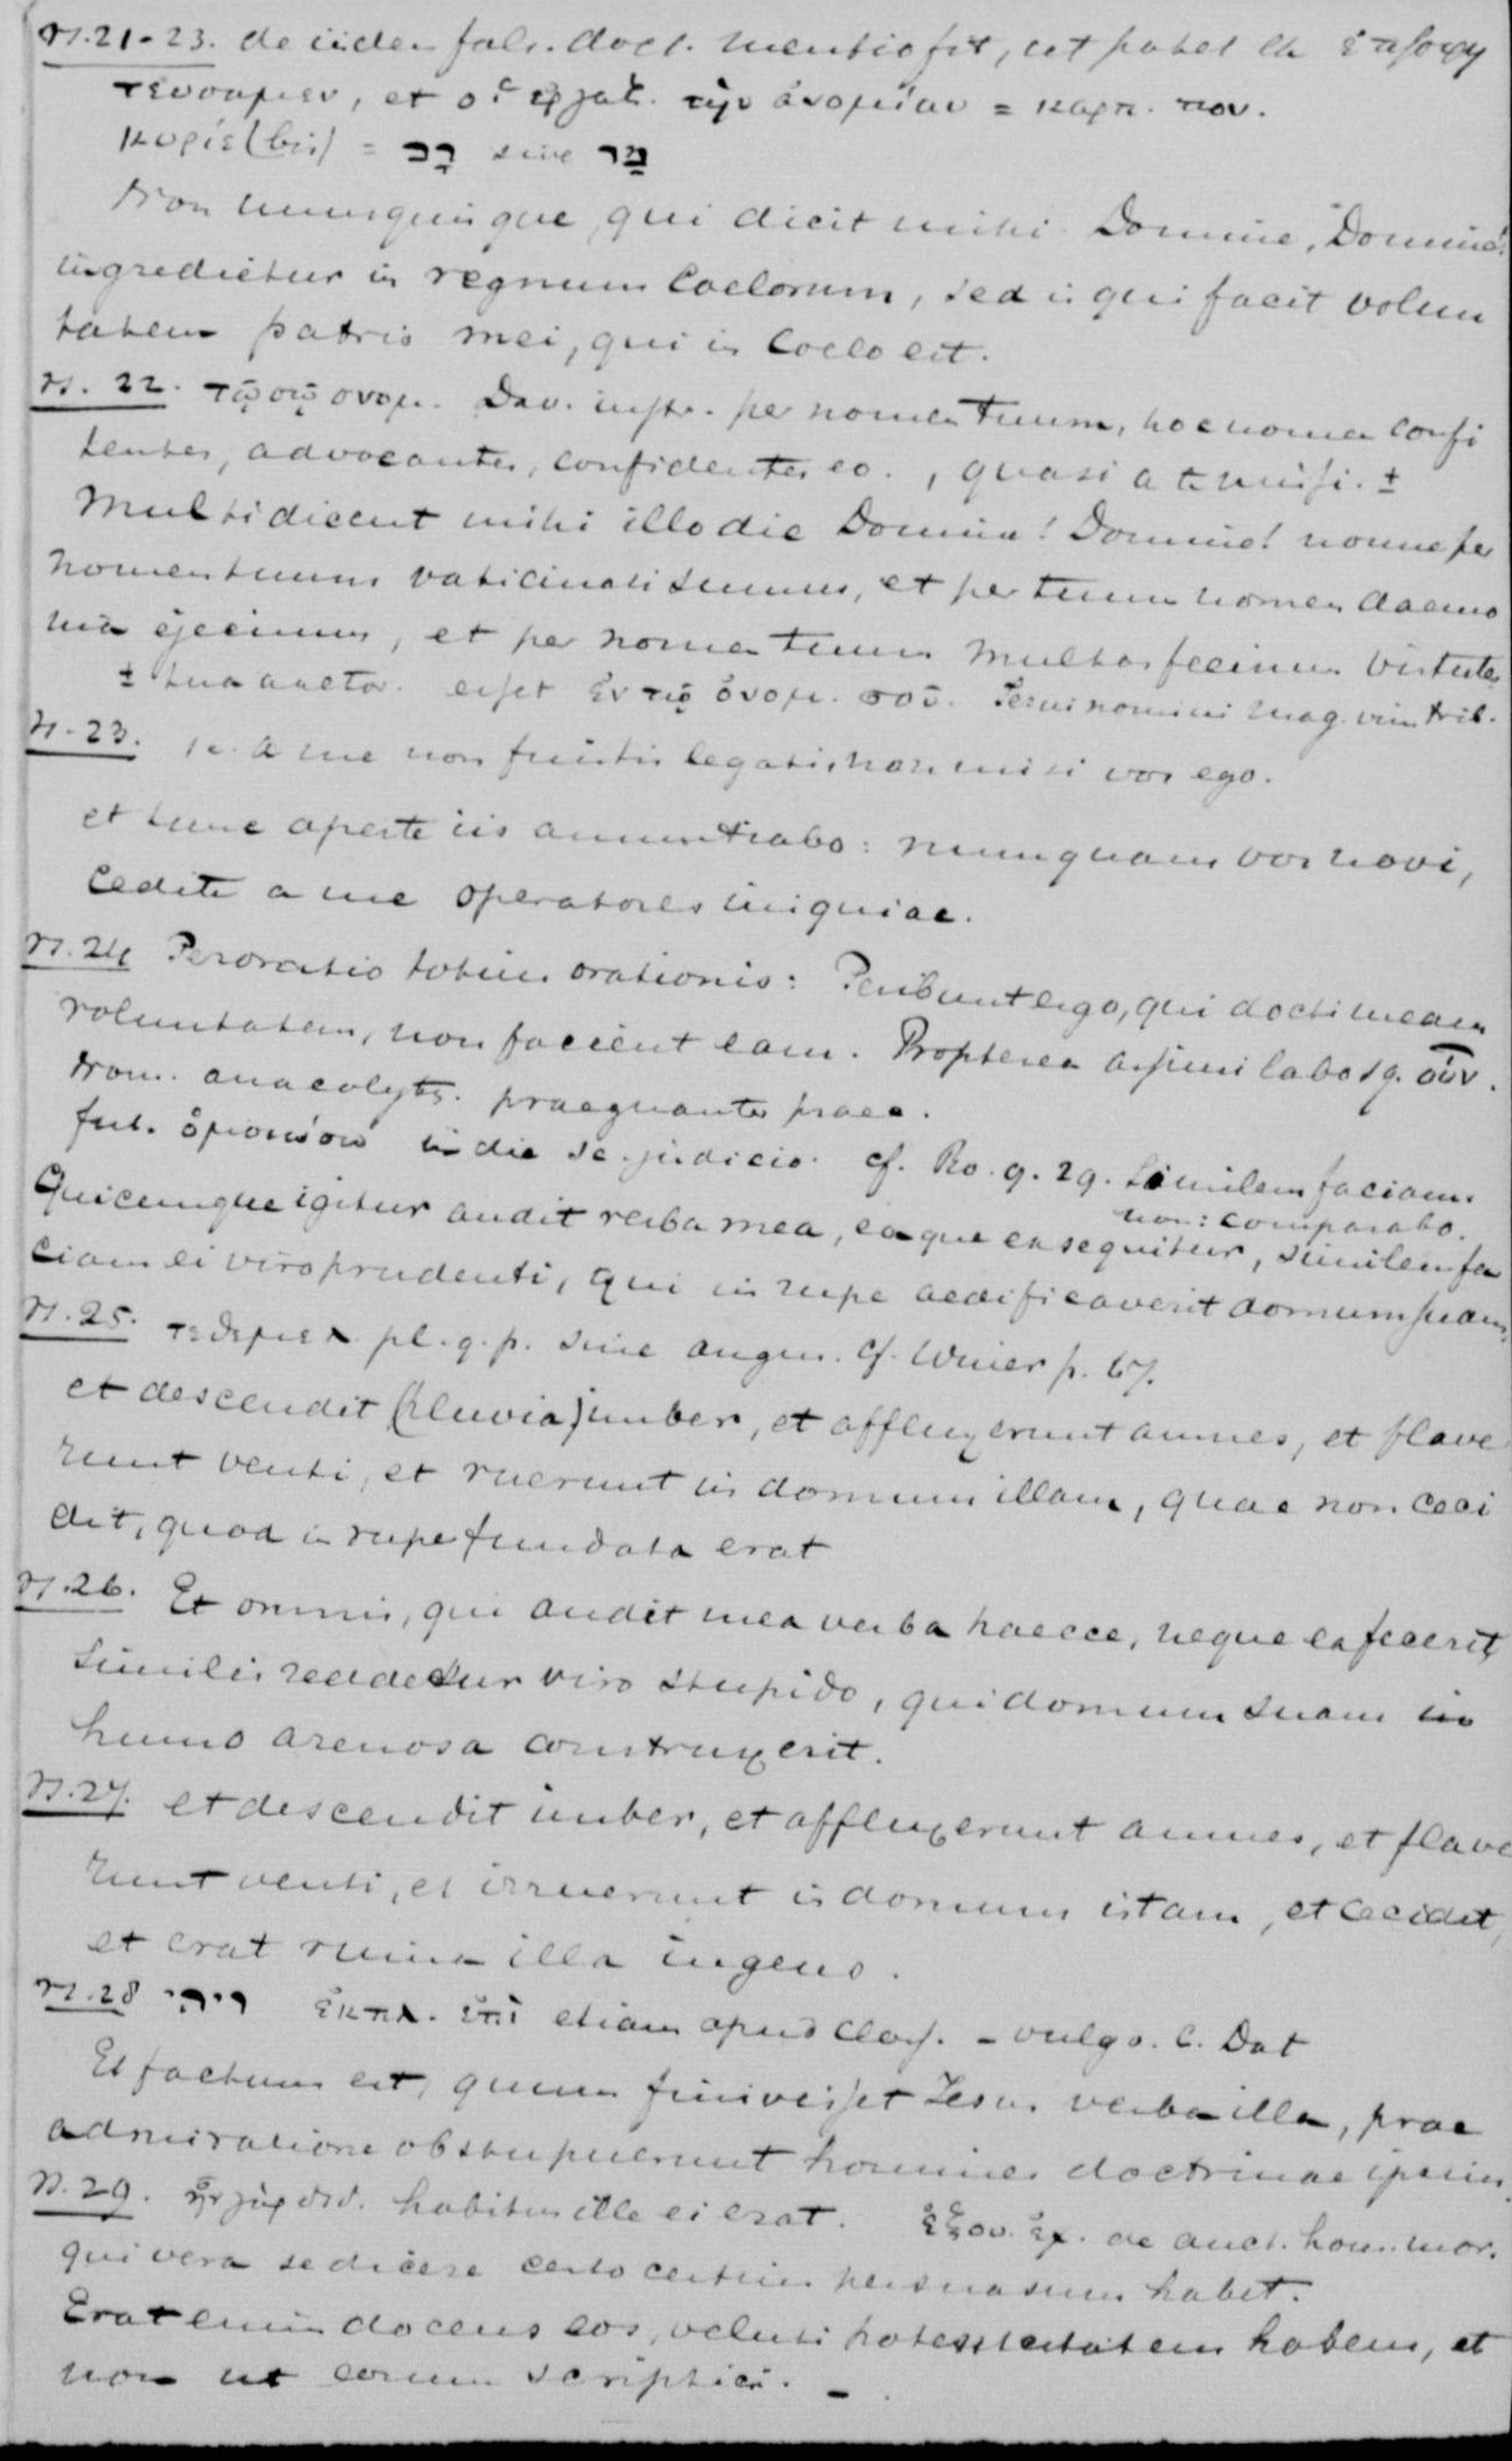 vs. 21-23. de iisdem fals. doct. mentio fit, ut patet ex
et οἱ ἐργαζ. τὴν ἀνομίαν = καρπ. πον.
κυρίε (bis) = רַב sive מָר
Non unusquisque, qui dicit mihi Domine, Domine!
ingredietur in regnum Coelorum, sed is qui facit volun
tatem patris mei, qui in Coelo est.
vs. 22. τῷ σῷ ονομ. Dav. instr. per nomen Tuum, hoc nomen confi
tentes, advocantes, confidentes eo., quasi a te missi. ±
Multi dicent mihi illo die Domine! Domine! nonne per
nomen tuum vaticinati sumus, et per tuum nomen daemo
nia ejecimus, et per nomen tuum multas fecimus virtutes
± tua auctor. esset ἐν τῷ ὀνομ. σοῦ. Jesu nomini mag. vim trib.
vs. 23. a me non fuistis legati, non misi vos ego.
et tunc aperte iis annuntiabo: nunquam vos novi,
cedite a me operatores iniquiae.
vs. 24 Peroratio totius orationis: Peribunt ergo, qui docti meam
voluntatem, non facient eam. Propterea οὖν.
Nom. anacolyth. praegnanter praec.
fut. ὁμοιώσω in die sc. judicio. cf. Ro. 9. 29. Similem faciam.
non: comparabo.
Quicunque igitur audit verba mea, eaque exsequitur, similem fa
ciam ei viro prudenti, qui in rupe aedificaverit domum suam.
vs. 25. τεθεμελ. pl.q.p. sine augm. cf. Winer p. 67.
et descendit (pluvia) imber, et affluxerunt amnes, et flave
runt venti, et ruerunt in domum illam, quae non ceci
dit, quod in rupe fundata erat
vs. 26. Et omnis, qui audit mea verba haecce, neque ea fecerit,
similis reddetur viro stupido, qui domum suam in
humo arenosa construxerit.
vs. 27. et descendit imber, et affluxerunt amnes, et flave
runt venti, et irruerunt in domum istam, et cecidit,
et erat ruina illa ingens.
vs. 28 ויהי ἐκπλ. ἐπὶ etiam apud Class. - vulgo. c. Dat
Et factum est, quum finivisset Jesus verba illa, prae
admiratione obstupuerunt homines doctrinae ipsius.
vs. 29. ἦν γὰρ διδ. habitus ille ei erat. ἐξου. ἐχ. de auct. hom. mor.
qui vera se dicere certo certius persuasum habet.
Erat enim docens eos, veluti potesstatatem habens, et
non ut eorum scriptici. -